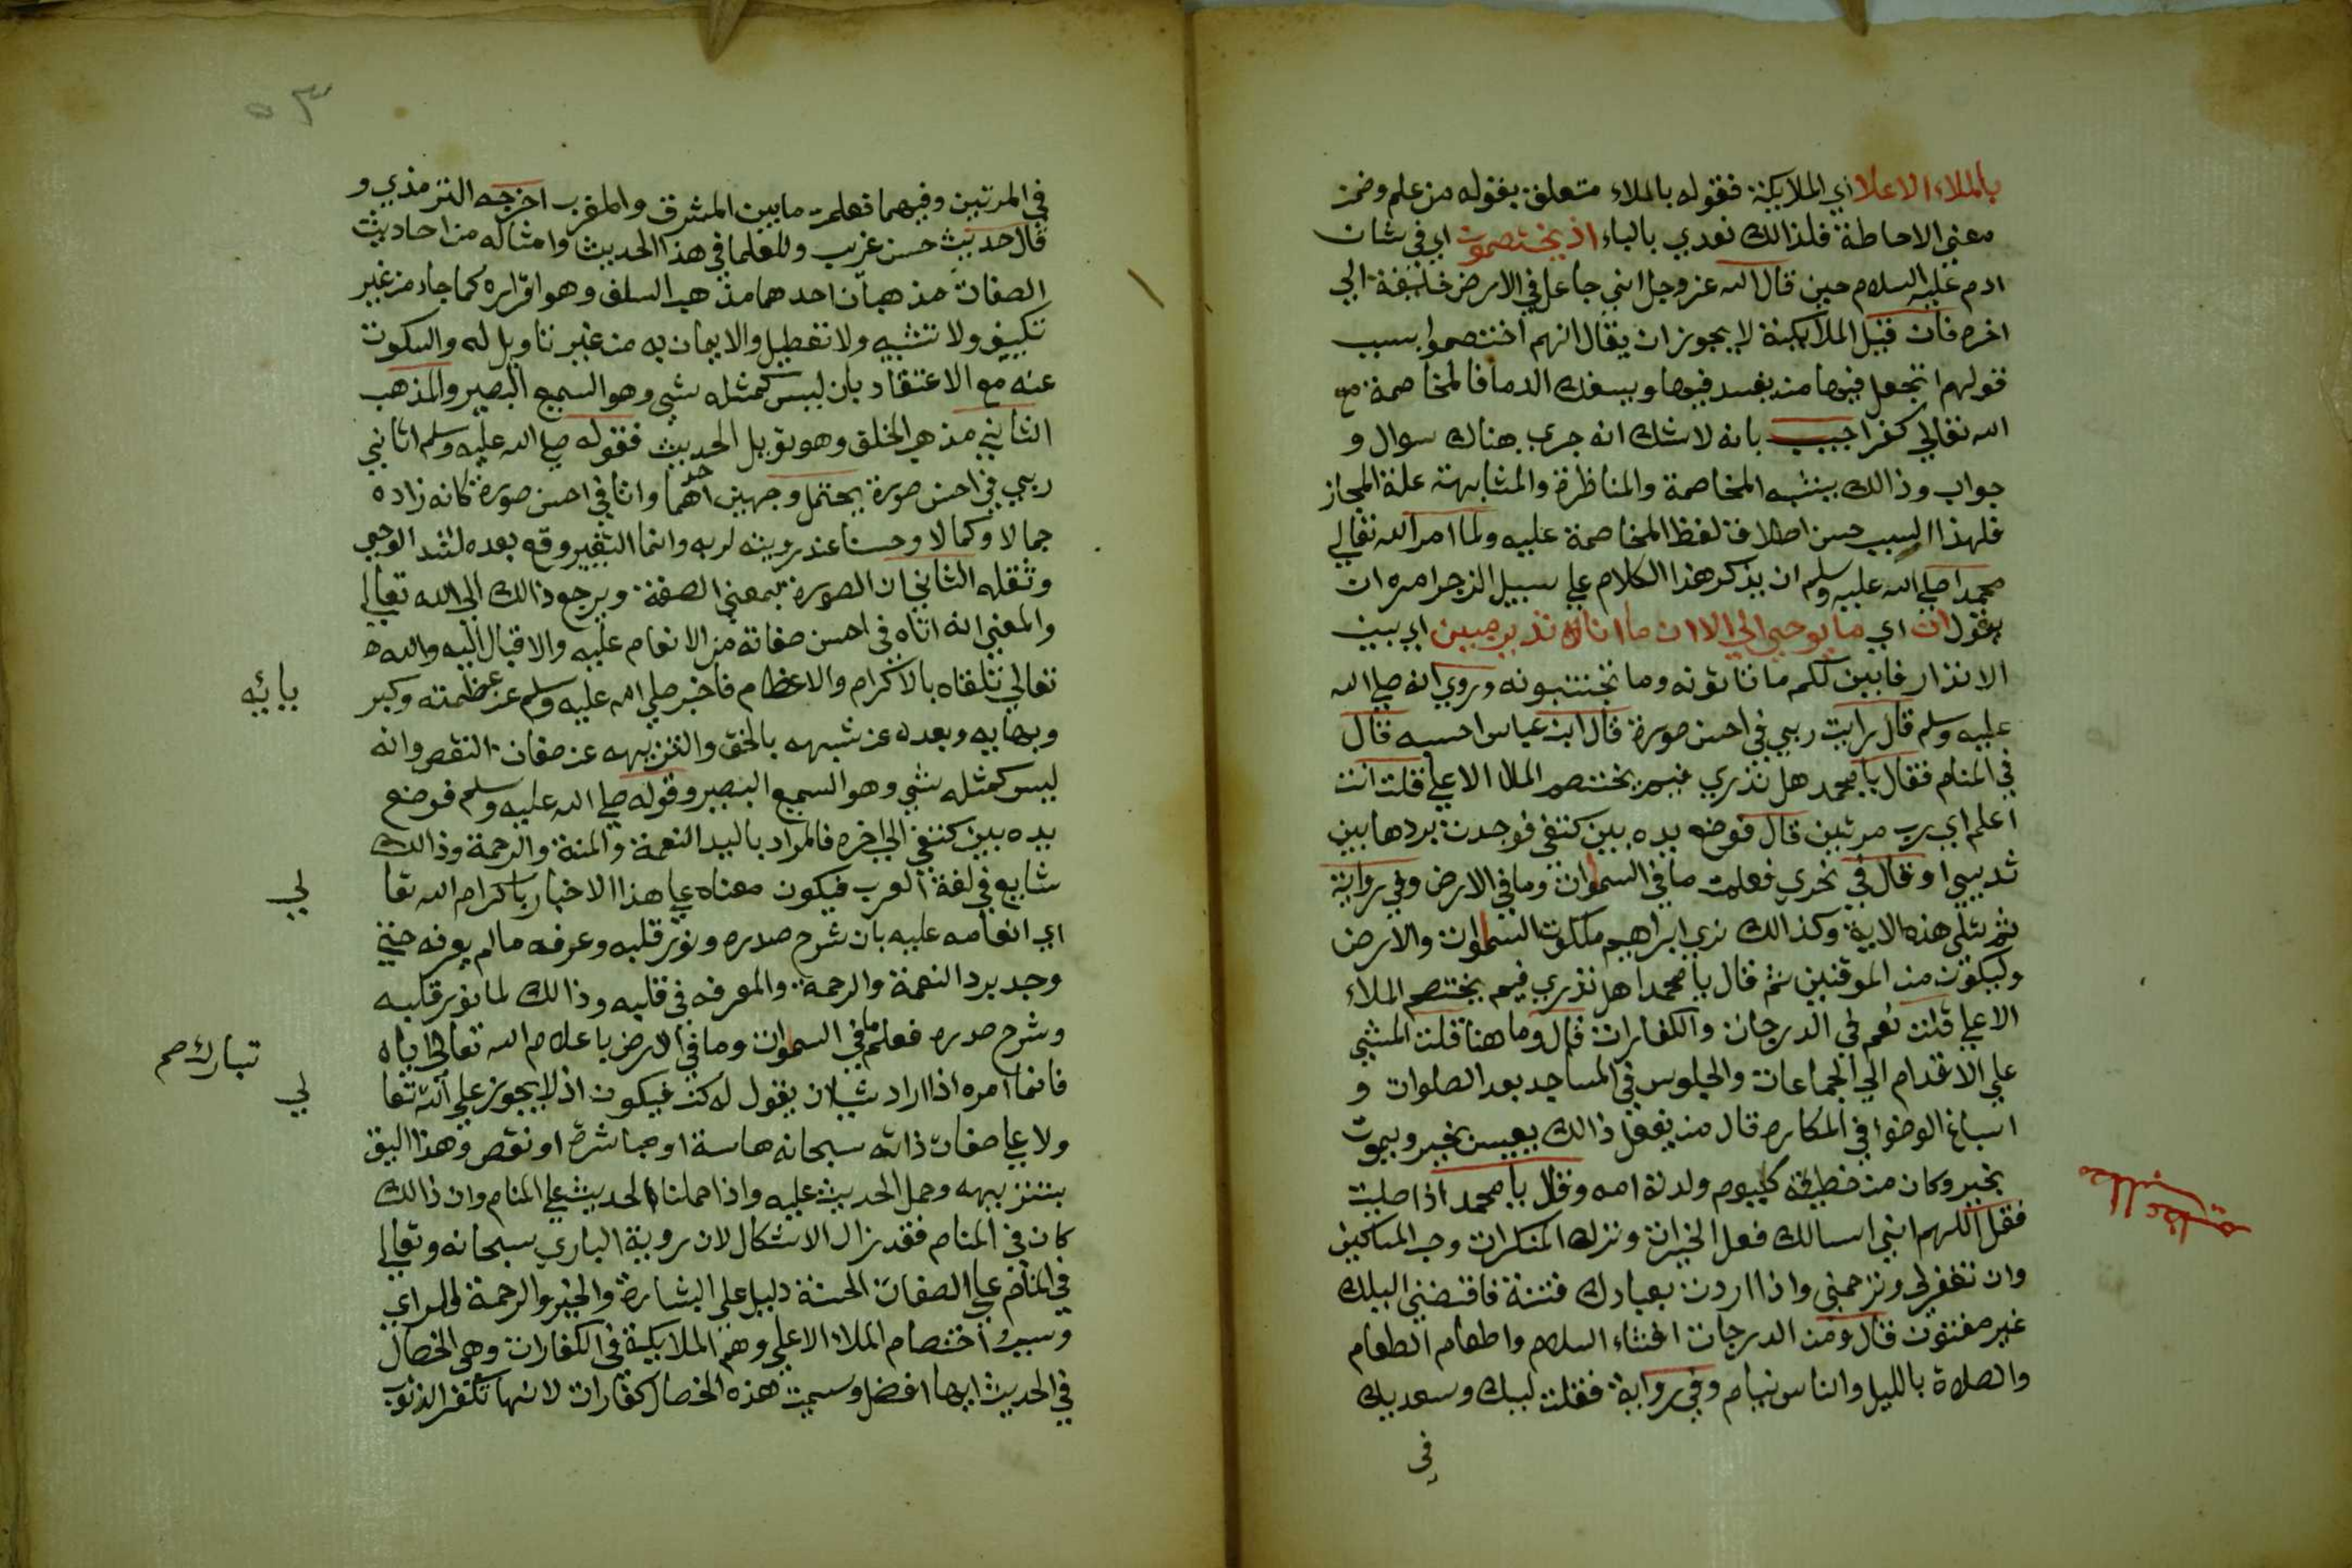 بالملاء الاعلا اي الملايكة فقوله بالملاء متعلق بقوله من علم وضمن
معني الاحاطة فلذالك تعدي بالباء اذ يختصمون اي في شان
ادم عليه السلام حين قال الله عز وجل اني جاعل في الارض خليفة الي
اخره فان قيل الملايكة لا يجوز ان يقال انهم اختصموا بسبب
قولهم اتجعل فيها من يفسد فيها ويسفك الدما فالمخاصمة مع
الله تعالي كفر اجيب بانه لاشك انه جري هناك سوال و
جواب وذالك يشبه المخاصمة والمناظرة والمشابهة علة المجاز
فلهذا السبب حسن اطلاق لفظ المخاصمة عليه ولما امر الله تعالي
محمدا صلي الله عليه وسلم ان يذكر هذا الكلام علي سبيل الزجر امره ان
يقول ان اي ما يوحي الي الا ان ما انا نذير مبين اي بين
الانذار فابين لكم ما تاتونه وما تجتنبونه وروي انه صلي الله
عليه وسلم قال رايت ربي في احسن صورة قال ابن عباس احسبه قال
في المنام فقال يا محمد هل تدري فيم يختصم الملا الاعلي قلت انت
اعلم اي رب مرتين قال فوضع يده بين كتفي فوجدت بردها بين
ثديي او قال في نحري فعلمت ما في السموات وما في الارض وفي رواية
ثم تلي هذه الاية وكذالك نري ابراهيم ملكوت السموات والارض
وليكون من الموقنين ثم قال يا محمد هل تدري فيم يختصم الملاء
الاعلي قلت نعم في الدرجات والكفارات قال وما هنا قلت المشي
علي الاقدام الي الجماعات والجلوس في المساجد بعد الصلوات و
اسباغ الوضوا في المكاره قال من يفعل ذالك يعيش بخير ويموت
بخير وكان من خطيئة كيوم ولدته امه وقال يا محمد اذا صليت
فقل اللهم اني اسالك فعل الخيرات وترك المنكرات وحب المساكين
وان تغفر لي وترحمني واذا اردت بعبادك فتنة فاقبضني اليك
غير مفتون قال ومن الدرجات افشاء السلام واطعام الطعام
والصلاة بالليل والناس نيام وفي رواية فقلت لبيك وسعديك
في
٥٣
في المرتين وفيهما فعلمت ما بين المشرق والمغرب اخرجه الترمذي و
قال حديث حسن غريب وللعلما في هذا الحديث وامثاله من احاديث
الصفات مذهبان احدهما مذهب السلف وهو اقراره كما جاء من غير
تكييف ولا تشبيه ولا تعطيل والايمان به من غير تاويل له والسكوت
عنه مع الاعتقاد بان ليس كمثله شي وهو السميع البصير والمذهب
الثاني مذهب الخلق وهو تويل الحديث فقوله صلي الله عليه وسلم اتاني
ربي في احسن صورة يحتمل وجهين احدهما وانا في احسن صورة كانه زاده
جمالا وكمالا وحسنا عند رويته لربه وانما التغيير وقع بعده لشد الوحي
وثقله الثاني ان الصورة بمعني الصفة ويرجع ذالك الي الله تعالي
والمعني انه اتاه في احسن صفاته من الانعام عليه والاقبال اليه والله
تعالي تلقاه بالاكرام والاعظام فاخبر صلي الله عليه وسلم عن عظمته وكبر
يائه
وبهايه وبعده عن شبهه بالخلق والتنزيهه عن صفات النقص وانه
ليس كمثله شي وهو السميع البصير وقوله صلي الله عليه وسلم فوضع
يده بين كتفي الي اخره فالمراد باليد النعمة والمنة والرحمة وذالك
شايع في لغة العرب فيكون معناه علي هذا الاخبار باكرام الله تعا
لي
اي انعامه عليه بان شرح صدره ونور قلبه وعرفه مالم يعرفه حتي
وجد برد النعمة والرحمة والمعرفه في قلبه وذالك لما نور قلبه
وشرح صدره فعلم ما في السموات وما في الارض باعلام الله تعالي اياه
تبارك صح
فانما امره اذا اراد شيئا ان يقول له كن فيكون اذ لا يجوز علي الله تعا
لي
ولا علي صفات ذاته سبحانه مماسة او مباشرة او نقص وهذا اليق
بتنزيهه وحمل الحديث عليه واذا حملنا الحديث علي المنام وان ذالك
كان في المنام فقد زال الاشكال لان روية الباري سبحانه وتعالي
في المنام علي الصفات الحسنة دليل علي البشارة والخير والرحمة للراي
وسبب اختصام الملاء الاعلي وهم الملايكة في الكفارات وهي الخصال
في الحديث ايها افضل وسميت هذه الخصال كفارات لانها تكفر الذنوب